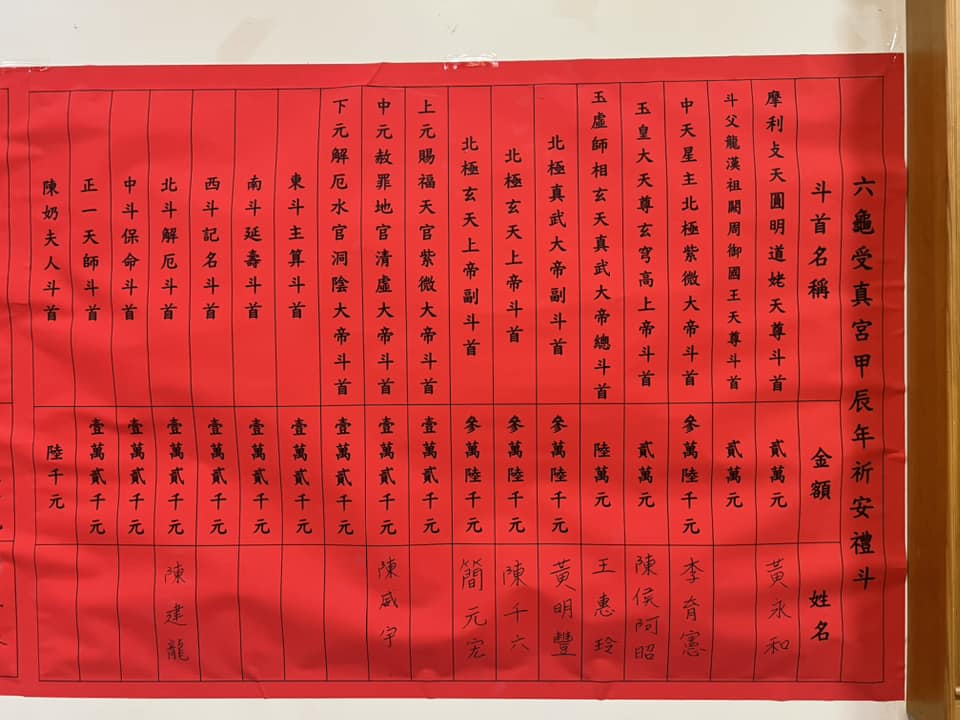 六龜受真宮甲辰年祈安禮斗
斗首名稱 金額 姓名
摩利攴天圓明道姥天尊斗首 貳萬元 黃永和
斗父龍漢祖闕周御國王天尊斗首 貳萬元
中天星主北極紫微大帝斗首 參萬陸千元 李育憲
玉皇大天尊玄穹高上帝斗首 貳萬元 陳侯阿昭
玉虛師相玄天真武大帝總斗首 陸萬元 王惠玲
北極真武大帝副斗首 參萬陸千元 黃明豐
北極玄天上帝斗首 參萬陸千元 陳千六
北極玄天上帝副斗首 參萬陸千元 簡元宏
上元賜福天官紫微大帝斗首 壹萬貳千元
中元赦罪地官清虛大帝斗首 壹萬貳千元 陳咸宇
下元解厄水官洞陰大帝斗首 壹萬貳千元
東斗主算斗首 壹萬貳千元
南斗延壽斗首 壹萬貳千元
西斗記名斗首 壹萬貳千元
北斗解厄斗首 壹萬貳千元 陳建龍
中斗保命斗首 壹萬貳千元
正一天師斗首 壹萬貳千元
陳奶夫人斗首 陸千元